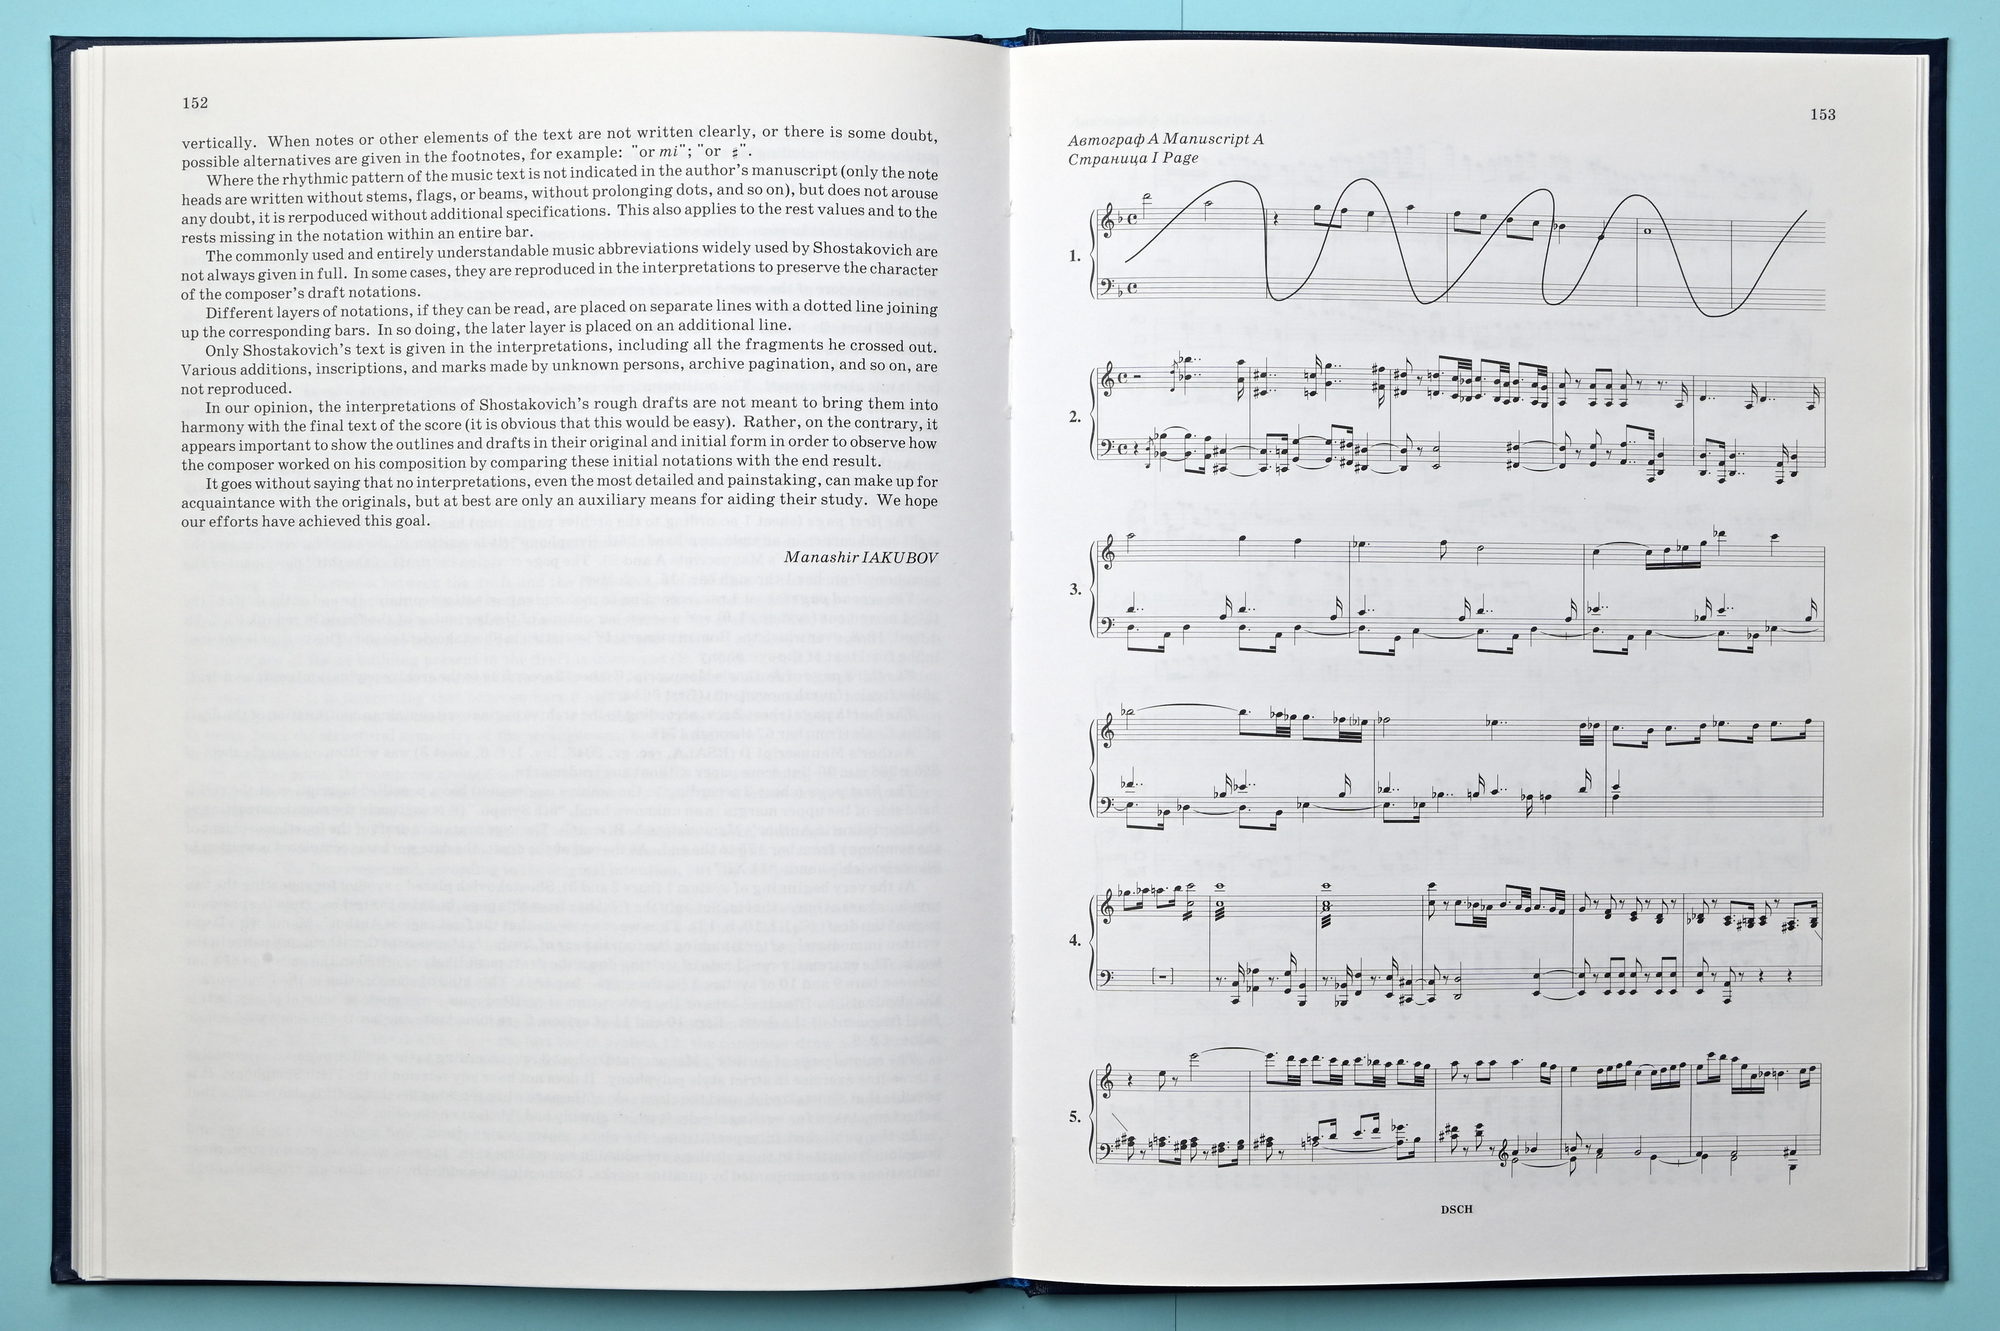 152
vertically. When notes or other elements of the text are not written clearly, or there is some doubt,
possible alternatives are given in the footnotes, for example: "or mi"; "or ♯".
Where the rhythmic pattern of the music text is not indicated in the author's manuscript (only the note
heads are written without stems, flags, or beams, without prolonging dots, and so on), but does not arouse
any doubt, it is rerpoduced without additional specifications. This also applies to the rest values and to the
rests missing in the notation within an entire bar.
The commonly used and entirely understandable music abbreviations widely used by Shostakovich are
not always given in full. In some cases, they are reproduced in the interpretations to preserve the character
of the composer's draft notations.
Different layers of notations, if they can be read, are placed on separate lines with a dotted line joining
up the corresponding bars. In so doing, the later layer is placed on an additional line.
Only Shostakovich's text is given in the interpretations, including all the fragments he crossed out.
Various additions, inscriptions, and marks made by unknown persons, archive pagination, and so on, are
not reproduced.
In our opinion, the interpretations of Shostakovich's rough drafts are not meant to bring them into
harmony with the final text of the score (it is obvious that this would be easy). Rather, on the contrary, it
appears important to show the outlines and drafts in their original and initial form in order to observe how
the composer worked on his composition by comparing these initial notations with the end result.
It goes without saying that no interpretations, even the most detailed and painstaking, can make up for
acquaintance with the originals, but at best are only an auxiliary means for aiding their study. We hope
our efforts have achieved this goal.
Manashir IAKUBOV
153
Автограф А Manuscript A
Страница I Page
1.
2.
3.
4.
5.
DSCH